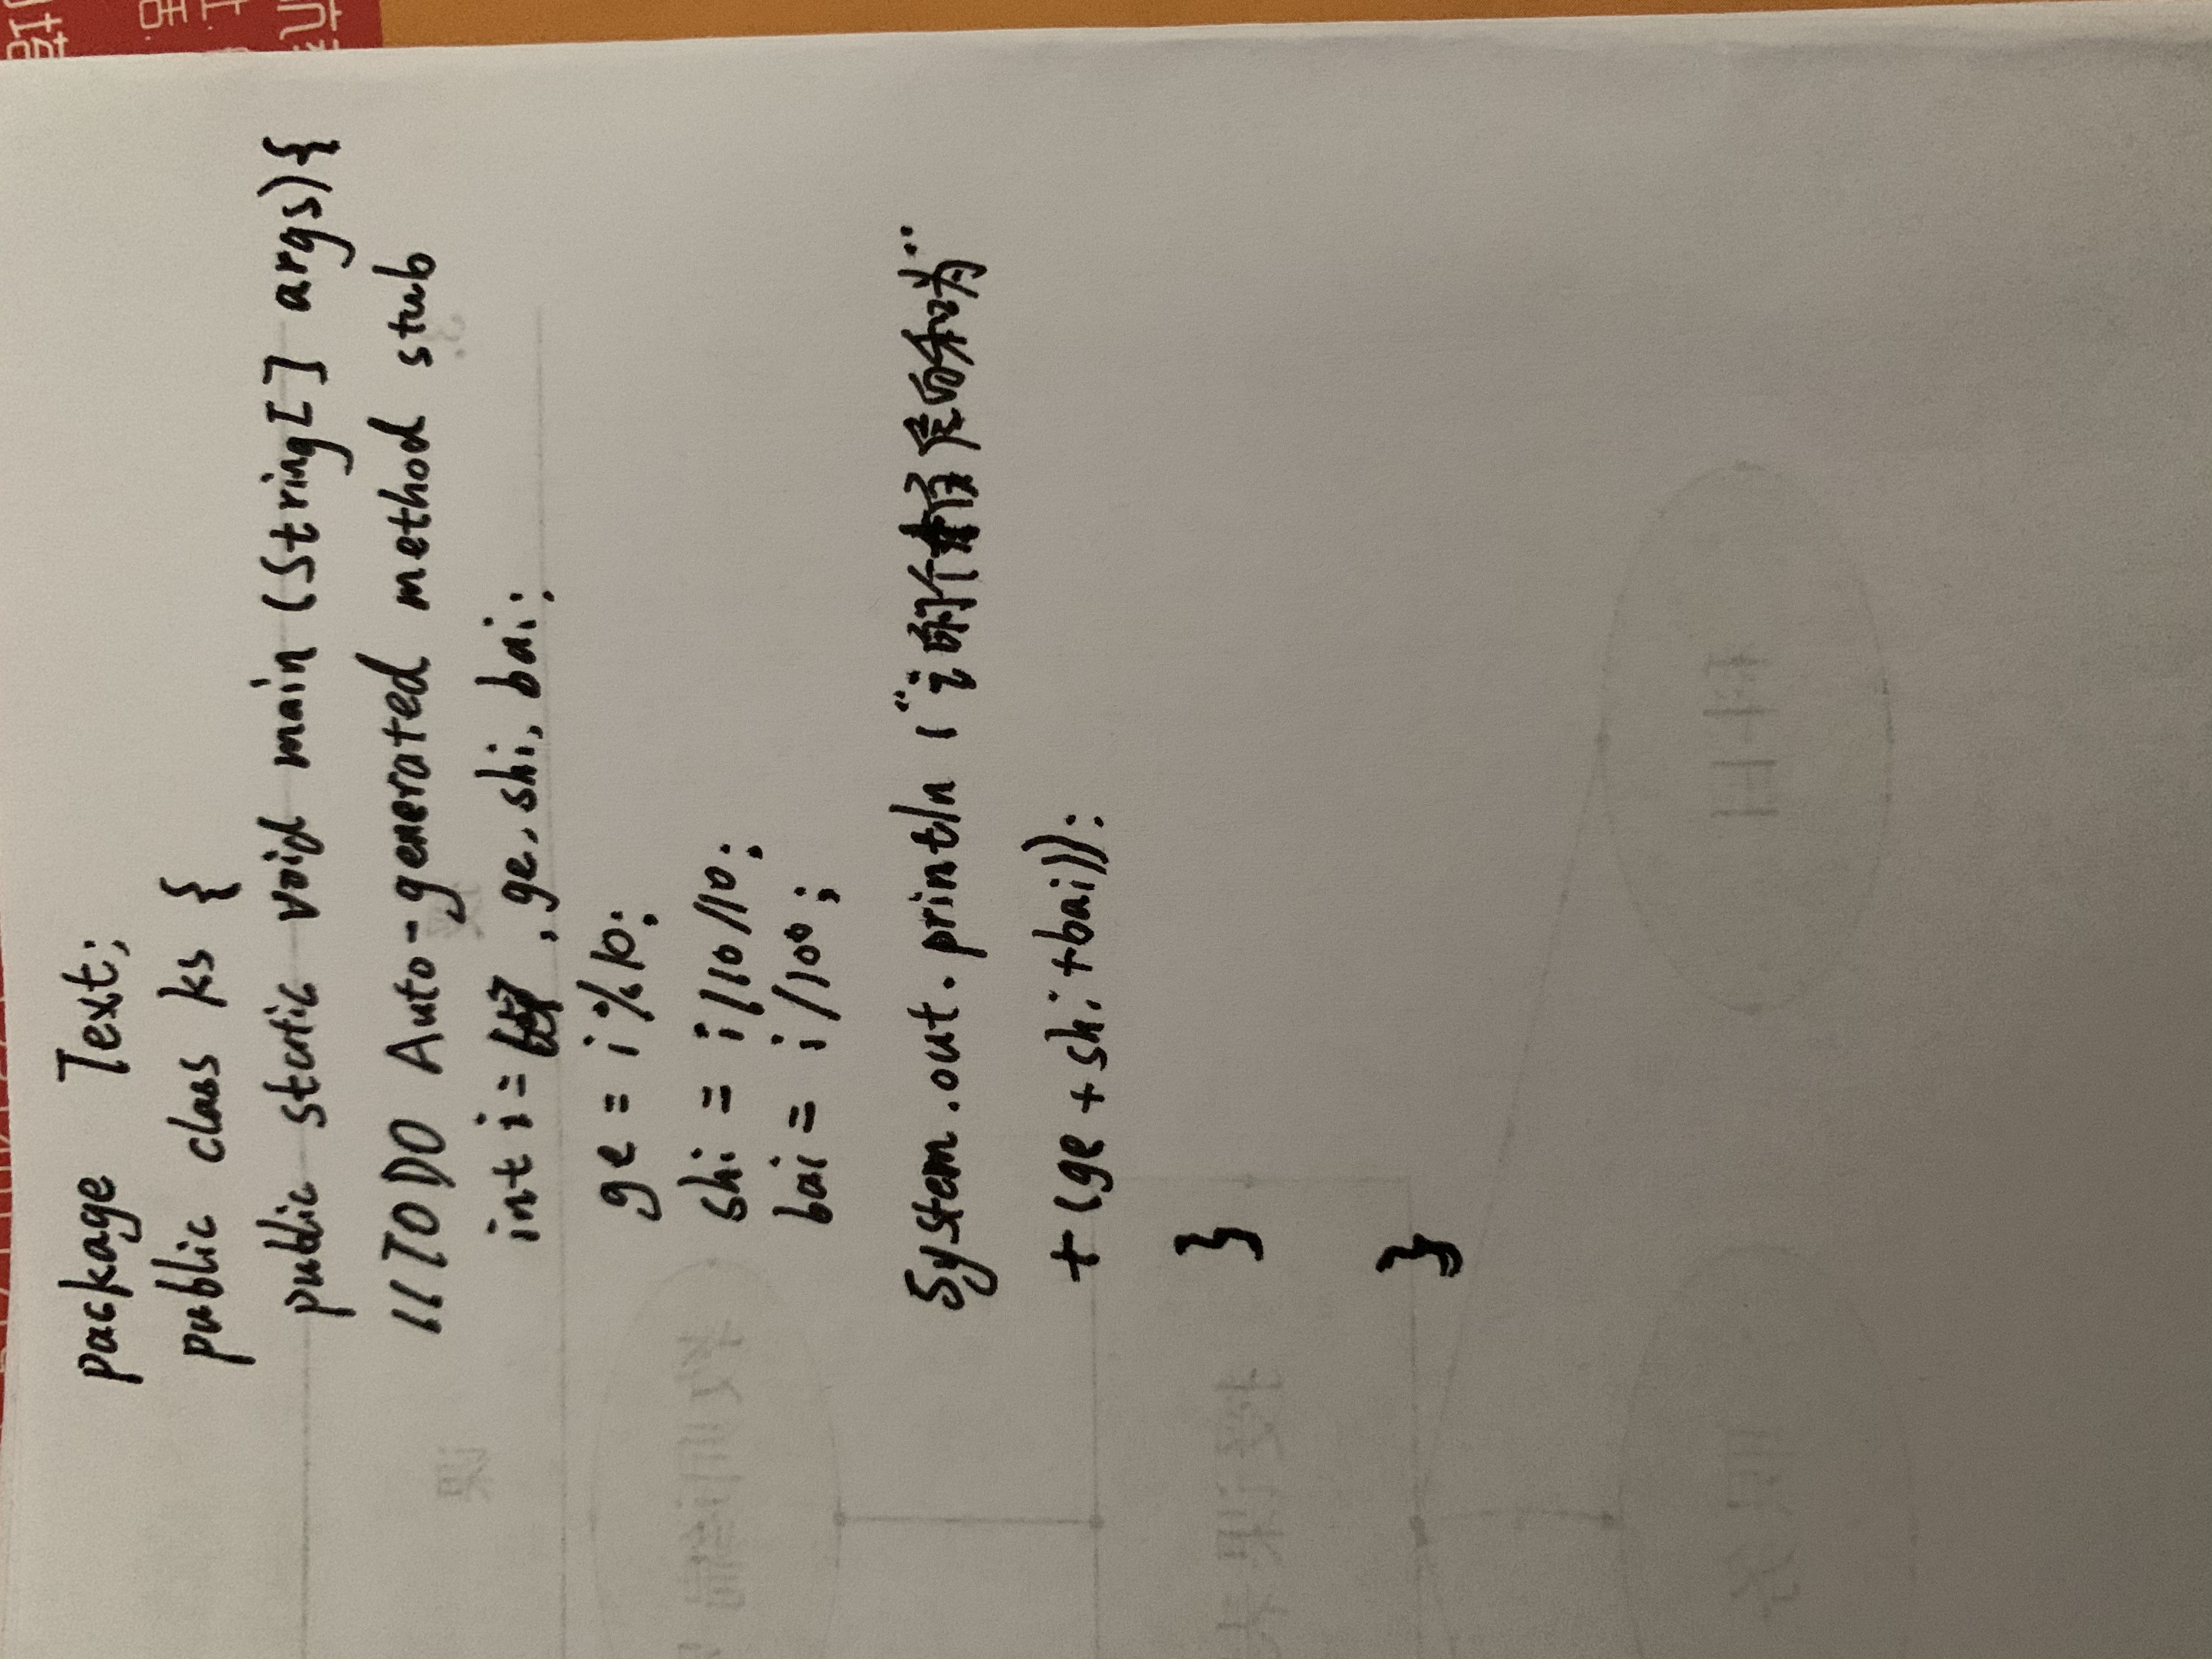 package Text;
public class ks {
public static void main (String[] args){
//TODO Auto-generated method stub
int i= ,ge,shi,bai;
ge = i%10;
shi = i/10/10;
bai = i/100;
System.out.println ("i的个 和为"
+(ge+shi+bai));
}
}